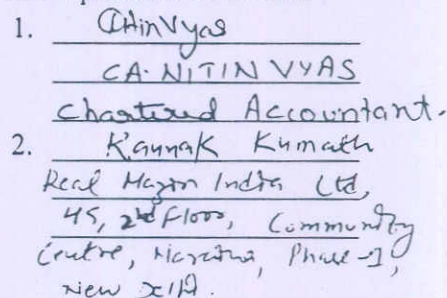 1. Nitin Vyas
CA. NITIN VYAS
Chartered Accountant.
2. Raunak Kumath
Real Mazon India Ltd,
45, 2nd Floor, Community
Centre, Naraina, Phase-I,
New